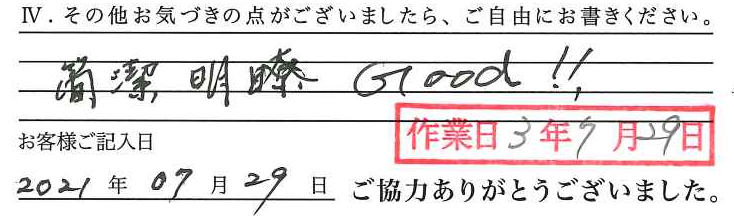 Ⅳ．その他お気づきの点がございましたら、ご自由にお書きください。
簡潔明瞭 Good!!
作業日3年7月29日
お客様ご記入日
2021年07月29日 ご協力ありがとうございました。